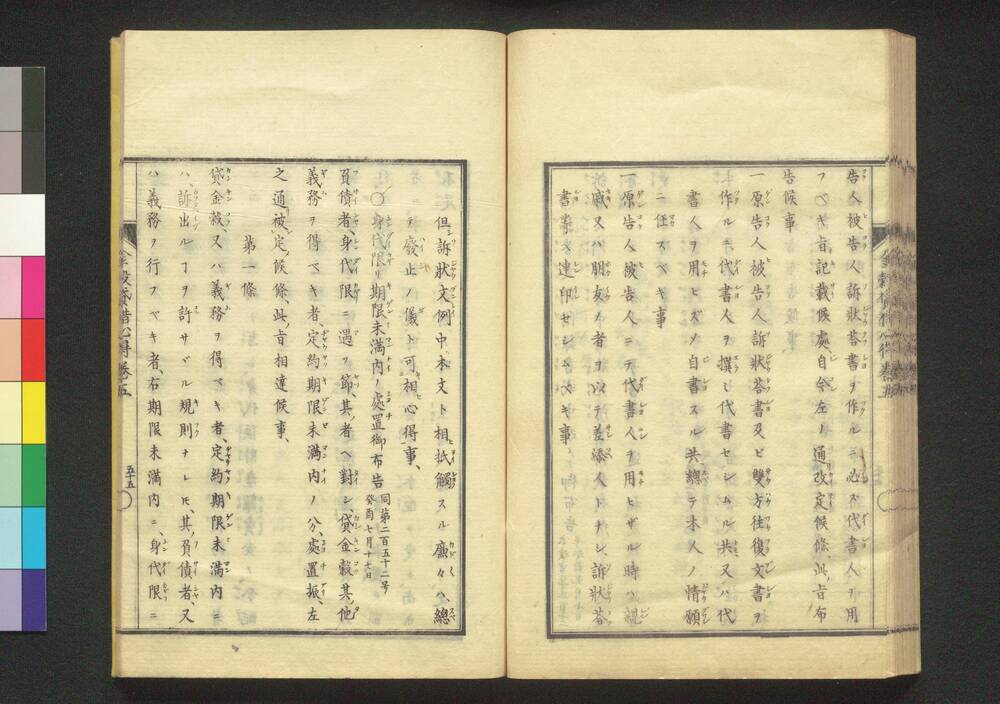 告人被告人訴狀答書ヲ作ルニ必ス代書人ヲ用
フヘキ旨記載候處自今左ノ通改定候條此旨布
告候事
一原告人被告人訴狀答書及ヒ雙方往復文書ヲ
作ルニ代書人ヲ撰ミ代書セシムル共又ハ代
書人ヲ用ヒズノ自書スル共總テ本人ノ情願
ニ任スベキ事
一原告人被告人ニテ代書人ヲ用ヒザル時ハ親
戚又ハ朋友ノ者ヲ以テ差添人トナシ訴狀答
書ヘ連印セシムベキ事
但訴狀文例中本文ト相抵觸スル廉々ハ總
テ廢止ノ儀ト可相心得事
〇身代限リ期限未滿内ノ處置御布告 同第二百五十二号 癸酉七月十七日
負債者身代限ニ遇フ節其者ヘ對シ貸金穀其他
義務ヲ得ベキ者定約期限未滿内ノ分處置振左
之通被定候條此旨相達候事
第一條
貸金穀又ハ義務ヲ得ベキ者定約期限未滿内ニ
ハ訴出ルヿヲ許サヾル規則ナレ𪜈其負債者又
ハ義務ヲ行フベキ者右期限未滿内ニ身代限ニ
金穀貸借心得 巻五
五十五